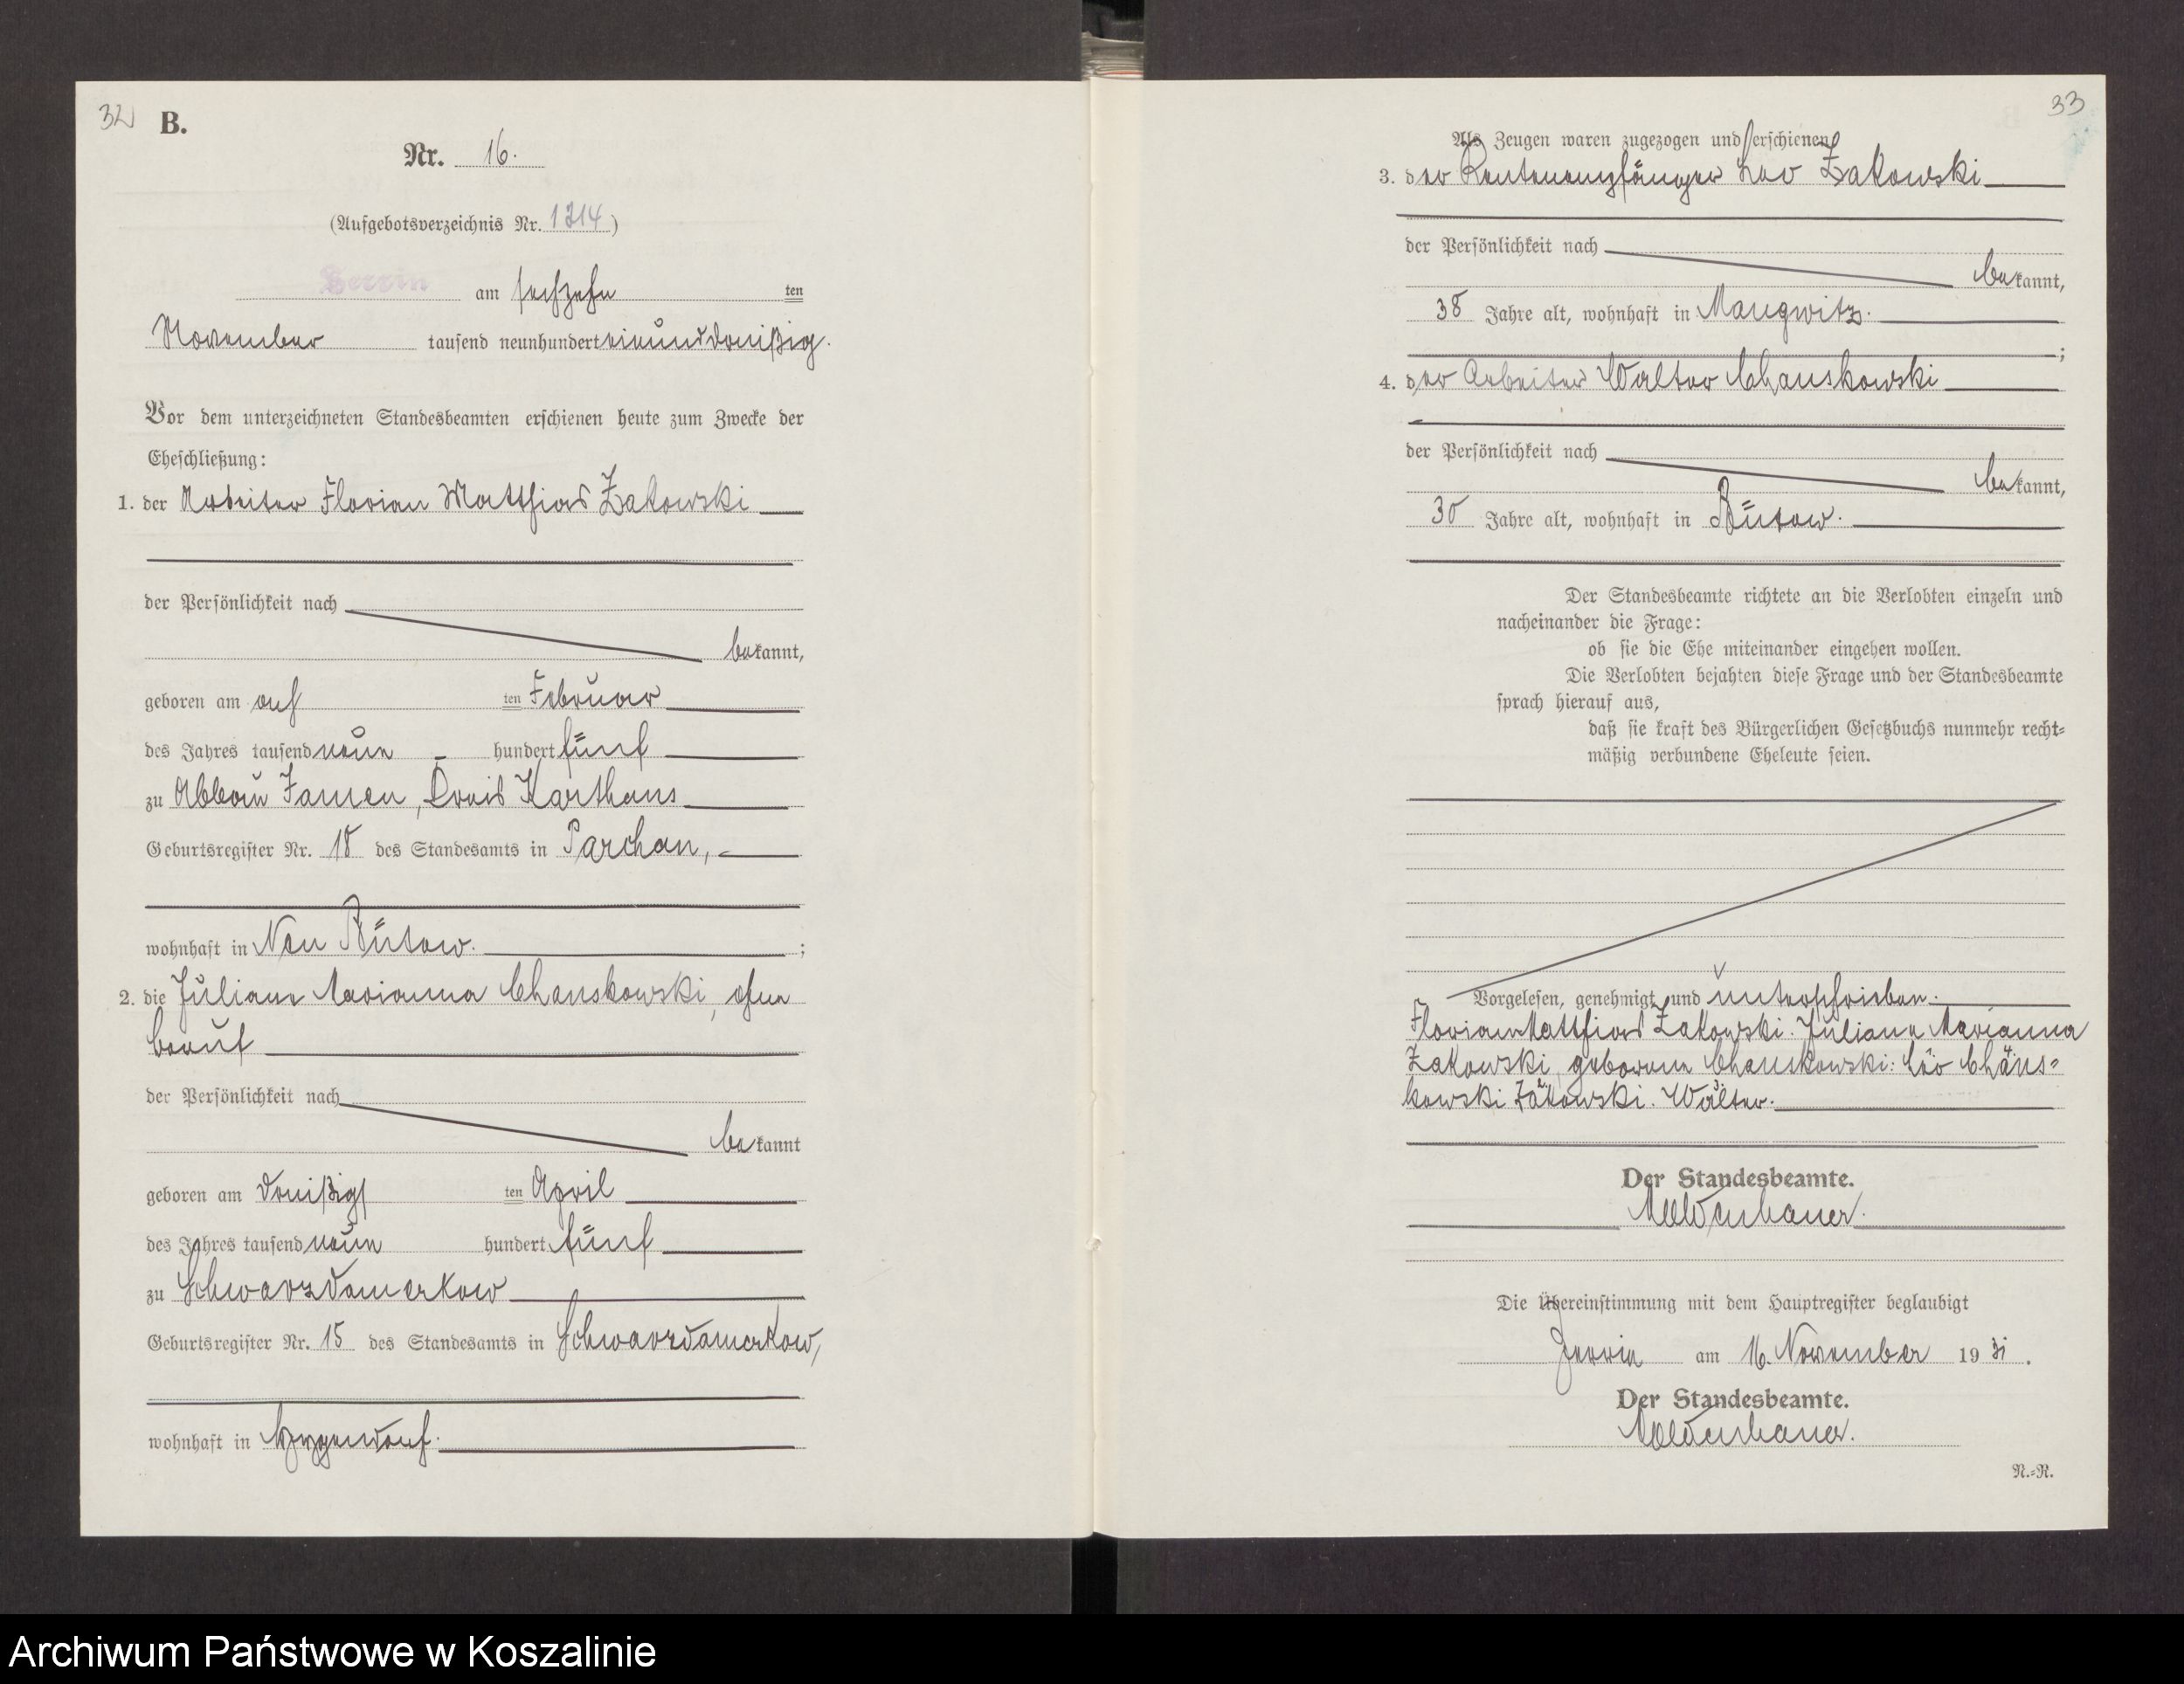 32
B.
Nr. 16.
(Aufgebotsverzeichnis Nr. 1214)
am sechzehn ten
November tausend neunhundert einunddreißig.
Vor dem unterzeichneten Standesbeamten erschienen heute zum Zwecke der
Eheschließung:
1. der Arbeiter Florian Matthias Zakowski
der Persönlichkeit nach
bekannt,
geboren am acht ten Februar
des Jahres tausend neun hundert fünf
zu Abbau Jamen, Kreis Karthaus
Geburtsregister Nr. 18 des Standesamts in Parchau,
wohnhaft in Neu Bütow.
;
2. die Juliane Marianna Chanskowski, ohne
Beruf
der Persönlichkeit nach
bekannt
geboren am dreißigs ten April
des Jahres tausend neun hundert fünf
zu Schwarzdamerkow
Geburtsregister Nr. 15 des Standesamts in Schwarzdamerkow,
wohnhaft in Hygendorf.
33
Als Zeugen waren zugezogen und erschienen
3. der Rentenempfänger Leo Zakowski
der Persönlichkeit nach
bekannt,
38 Jahre alt, wohnhaft in Mangwitz.
;
4. der Arbeiter Walter Chanskowski
der Persönlichkeit nach
bekannt,
30 Jahre alt, wohnhaft in Bütow.
Der Standesbeamte richtete an die Verlobten einzeln und
nacheinander die Frage:
ob sie die Ehe miteinander eingehen wollen.
Die Verlobten bejahten diese Frage und der Standesbeamte
sprach hierauf aus,
daß sie kraft des Bürgerlichen Gesetzbuchs nunmehr recht-
mäßig verbundene Eheleute seien.
Vorgelesen, genehmigt und unterschrieben.
Florian Matthias Zakowski. Juliane Marianna
Zakowski, geborene Chanskowski. Leo Chans-
kowski Zakowski. Walter.
Der Standesbeamte.
Moldenhauer.
Die Übereinstimmung mit dem Hauptregister beglaubigt
am 16. November 19 31.
Der Standesbeamte.
Moldenhauer.
N.-N.
Archiwum Państwowe w Koszalinie